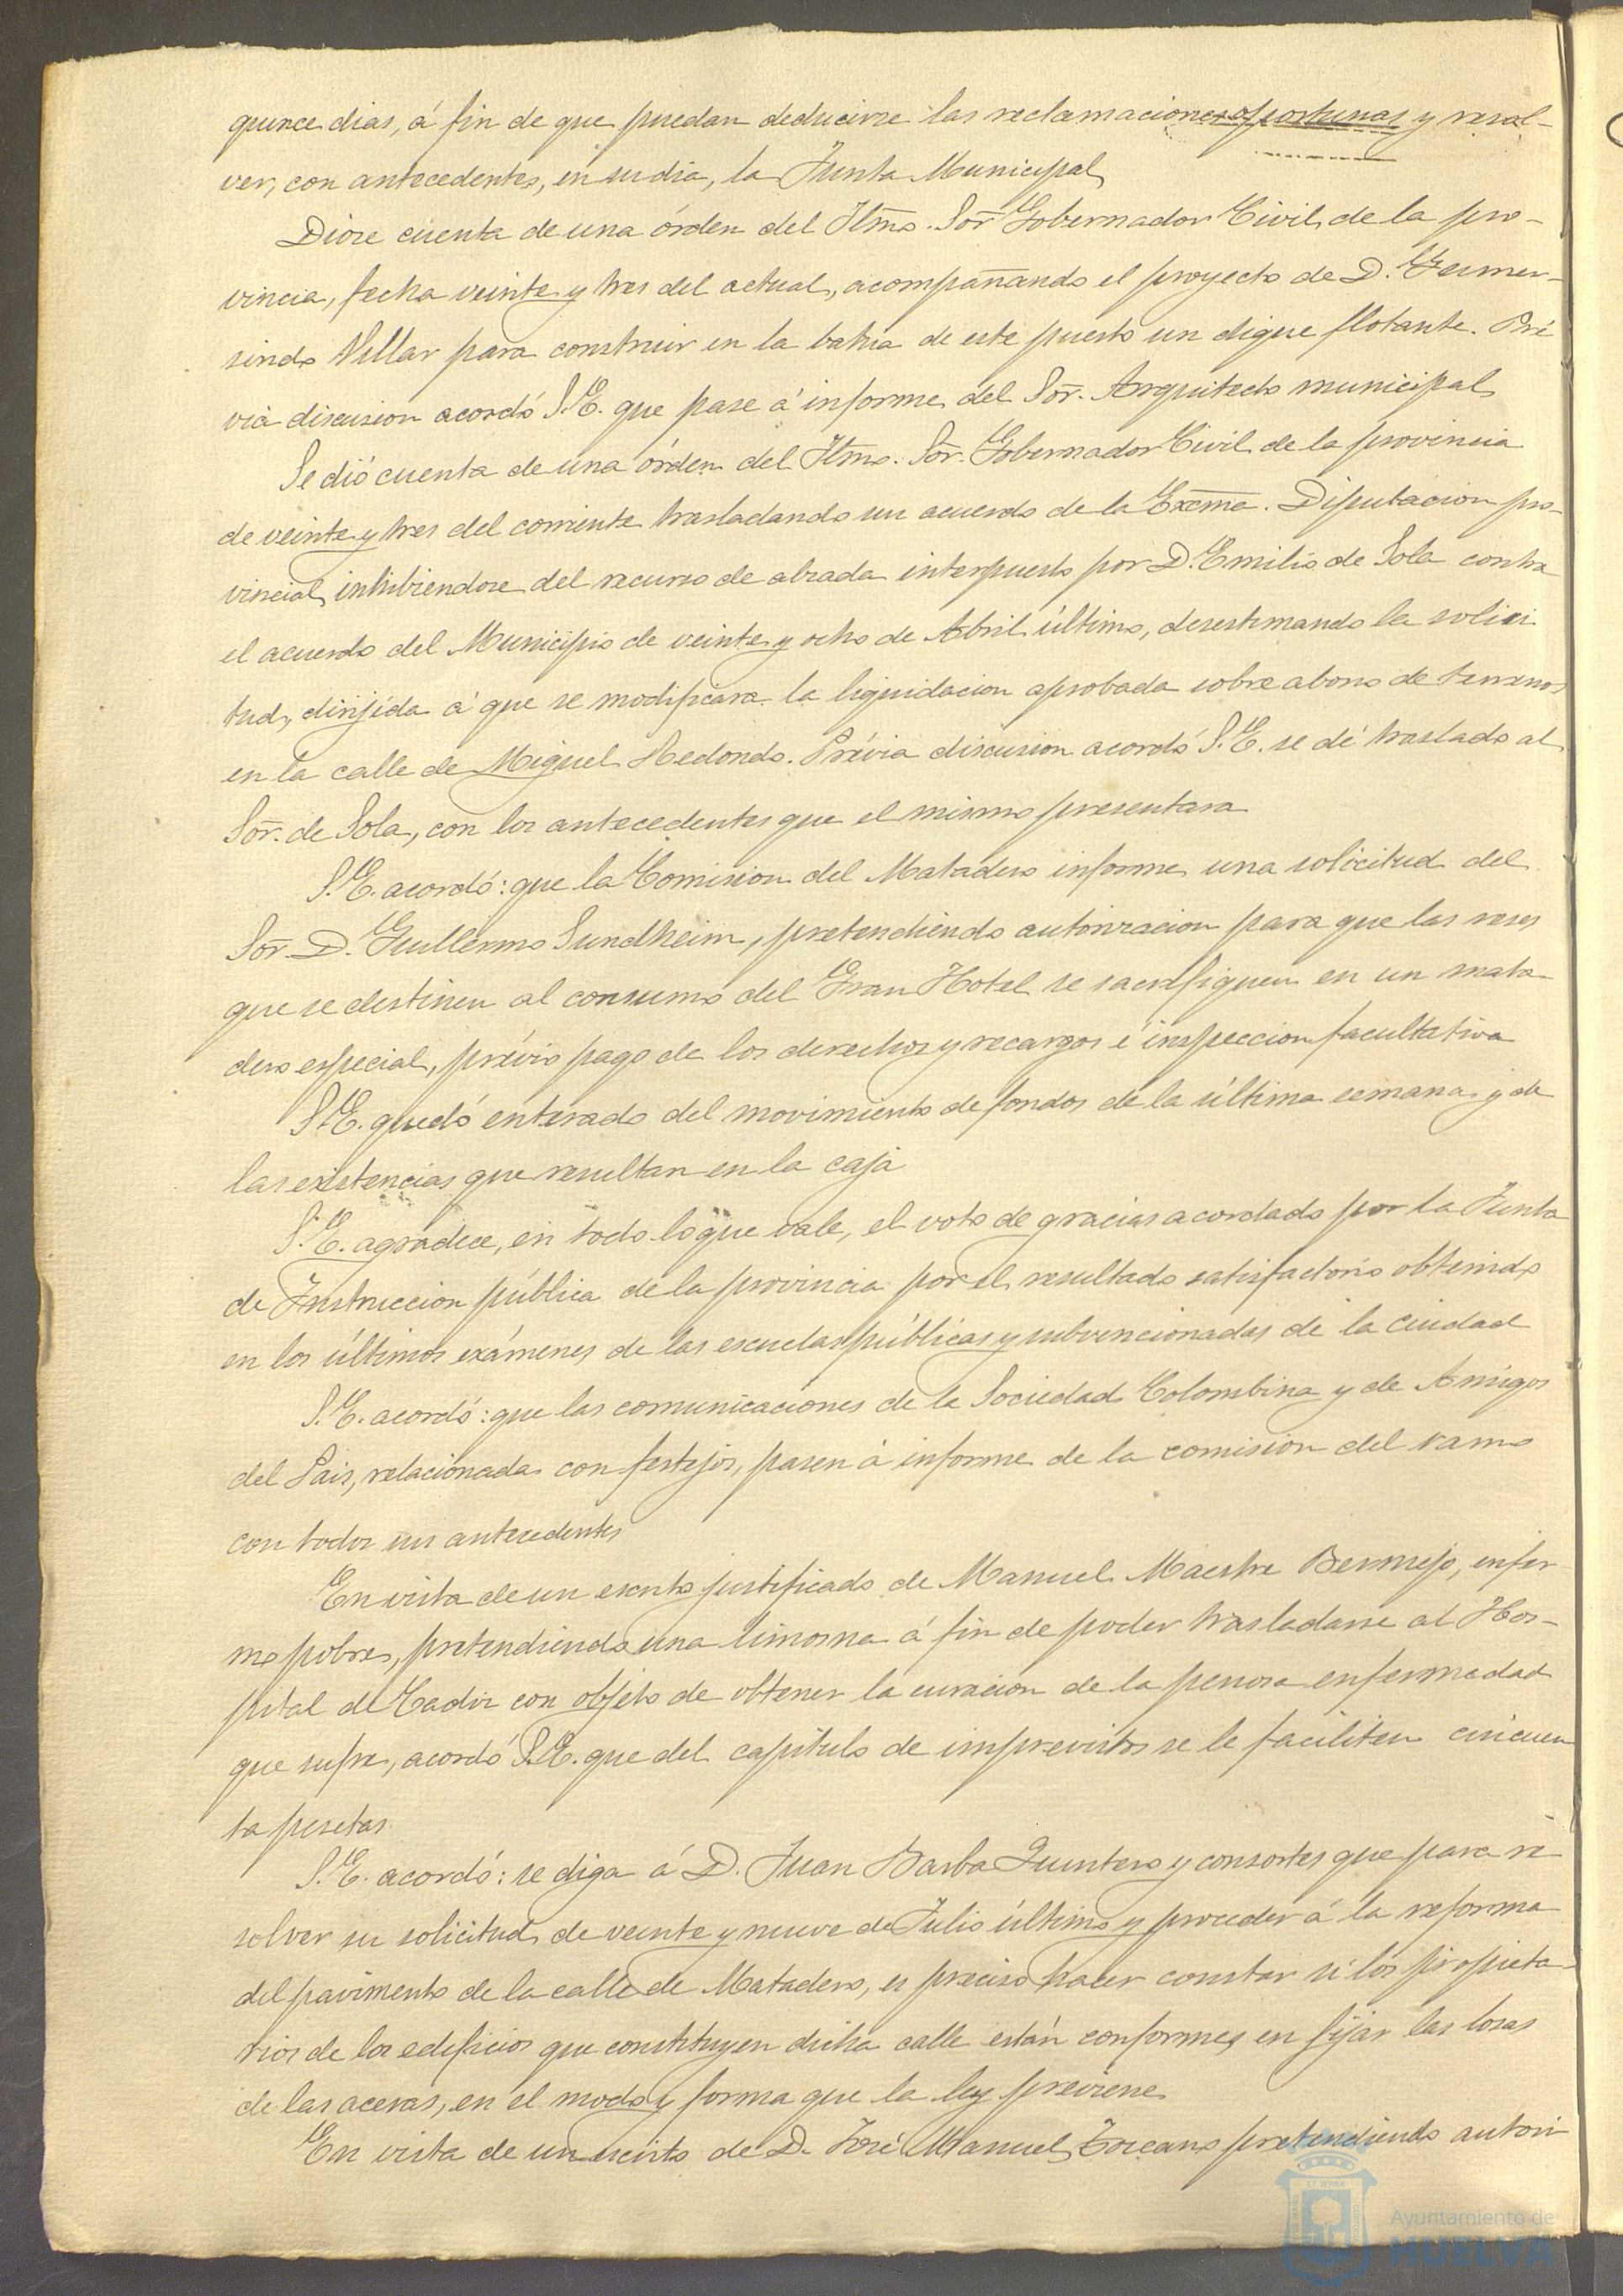 quince dias, á fin de que puedan deducirse las reclamaciones oportunas y resol-
ver, con antecedentes, en su dia, la Junta Municipal
Diose cuenta de una órden del Iltmo. Sor Gobernador Civil de la pro-
vincia, fecha veinte y tres del actual, acompañando el proyecto de D. Gumer-
sindo Villar para construir en la bahia de este puerto un dique flotante. Pré
via discusion acordó S.E. que pase á informe del Sor. Arquitecto municipal
Se dió cuenta de una órden del Iltmo. Sor. Gobernador Civil de la provincia
de veinte y tres del corriente trasladando un acuerdo de la Excma. Diputacion pro-
vincial, inhibiendose del recurso de alzada interpuesto por D. Emilio de Sola contra
el acuerdo del Municipio de veinte y ocho de Abril último, desestimando la solici
tud, dirijida á que se modificara la liquidacion aprobada sobre abono de terrenos
en la calle de Miguel Redondo. Prévia discusion acordó S.E. se dé traslado al
Sor. de Sola, con los antecedentes que el mismo presentara
S.E. acordó: que la Comision del Matadero informe una solicitud del
Sor. D. Guillermo Sundheim, pretendiendo autorizacion para que las reses
que se destinen al consumo del Gran Hotel se sacrifiquen en un mata-
dero especial, prévio pago de los derechos y recargos é inspeccion facultativa
S.E. quedó enterado del movimiento de fondos de la última semana y de
las existencias que resultan en la caja
S.E. agradece, en todo lo que vale, el voto de gracias acordado por la Junta
de Instruccion pública de la provincia por el resultado satisfactorio obtenido
en los últimos exámenes de las escuelas públicas y subvencionadas de la ciudad
S.E. acordó: que las comunicaciones de la Sociedad Colombina y de Amigos
del Pais, relacionadas con festejos, pasen á informe de la comision del ramo
con todos sus antecedentes
En vista de un escrito justificado de Manuel Maestre Bermejo, enfer
mo pobre, pretendiendo una limosna á fin de poder trasladarse al Hos-
pital de Cadiz con objeto de obtener la curacion de la penosa enfermedad
que sufre, acordó S.E. que del capítulo de imprevistos se le faciliten cincuen
ta pesetas
S.E. acordó: se diga á D. Juan Barba Quintero y consortes que para re
solver su solicitud de veinte y nueve de Julio último y proceder á la reforma
del pavimento de la calle de Matadero, es preciso hacer constar si los propieta-
rios de los edificios que constituyen dicha calle están conformes en fijar las losas
de las aceras, en el modo y forma que la ley previene
En vista de un escrito de D. José Manuel Toscano pretendiendo autori
Ayuntamiento de
HUELVA